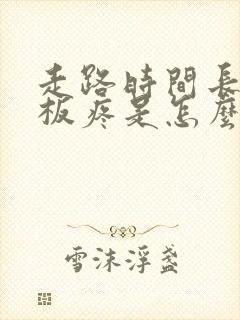 走路時間長
板疼是怎麼
雪沫浮盞